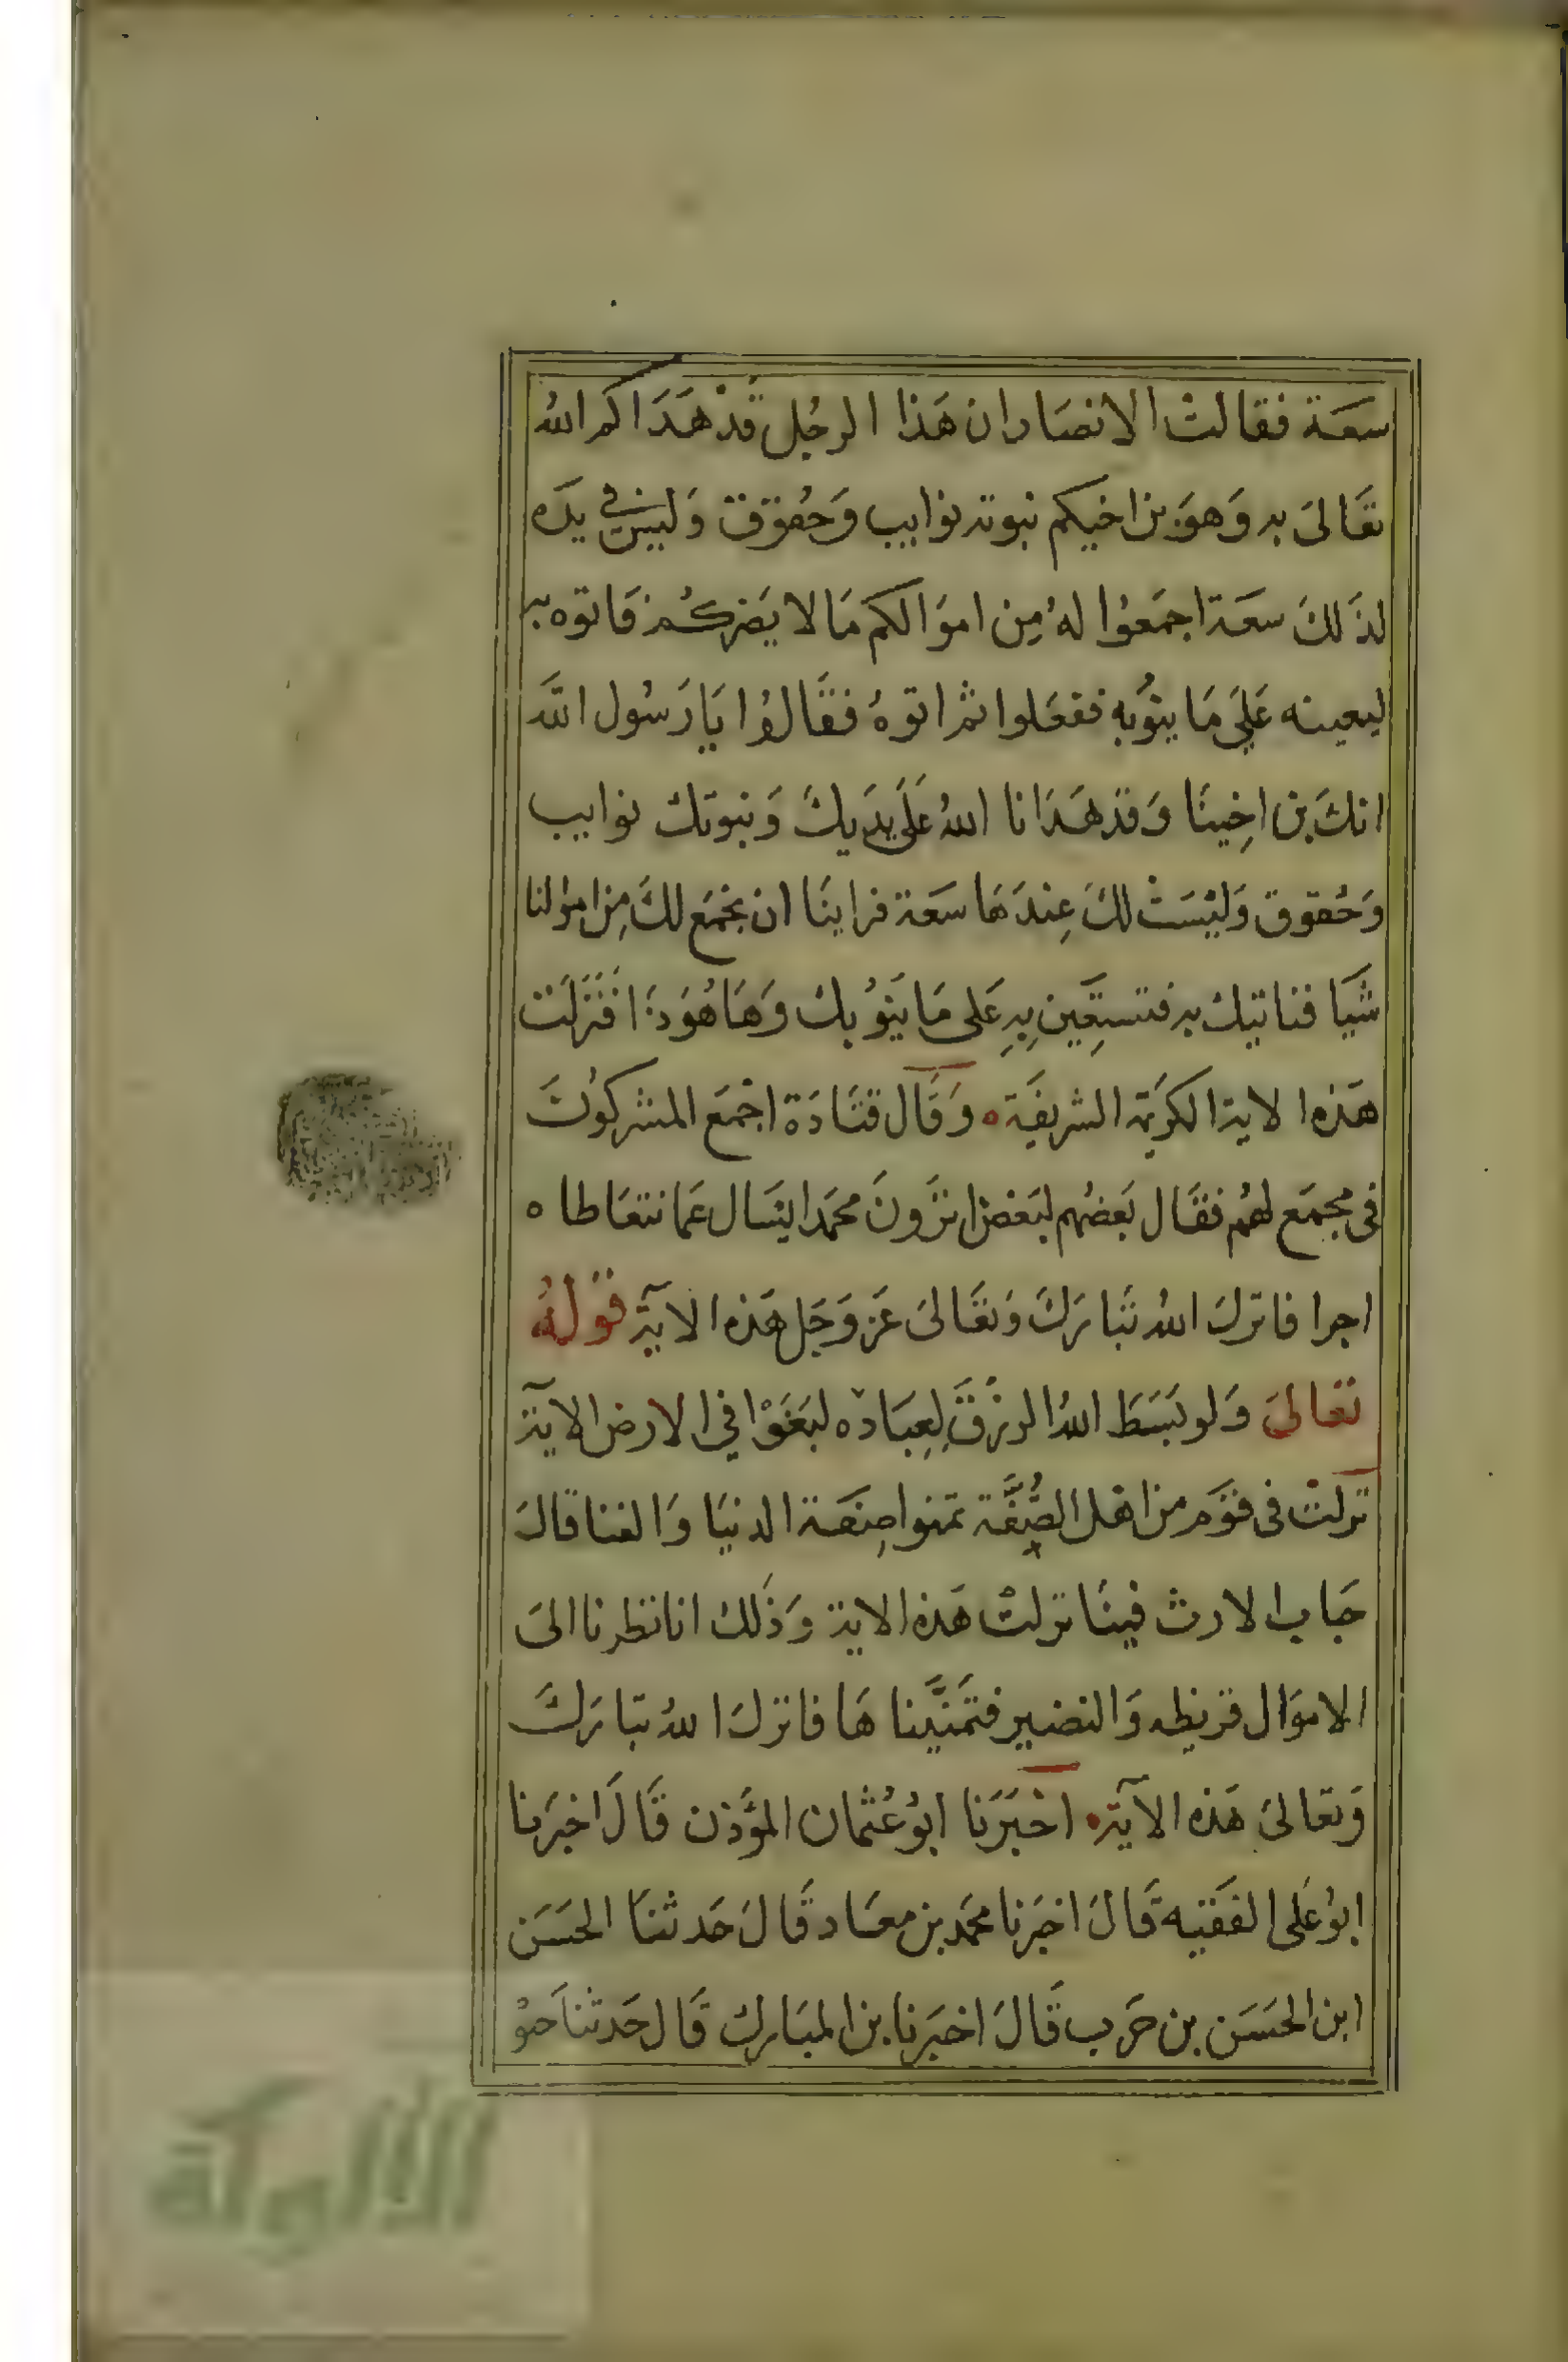 سَعَة فقالتْ الانصَاران هَذا الرجُل قَدْ هَدَاكم اللهُ
تعَالىَ به وَهوَ بن اخيكم تنوبه نوايب وَحُقوق وَليسَ في يدَه
لذَلكَ سعَة اجمَعُوا لهُ مِن اموَالكم مَالا يَضركُم فَاتوه به
ليعينه عَلَي مَا ينوُبه ففعَلوا ثم اتوهُ فقَالوُا يَا رَسُول اللَّه
انكَ بن اخِينَا وَقدهَدَانا اللهُ عَلَى يدَيكَ وَتنوبك نوايب
وَحُقوق وَليْسَتْ لكَ عِندَهَا سعَة فراينَا ان نجْمَع لكَ مِن اموالنا
شَيَا فناتيك به فتستعَين بِهِ عَلى مَا يَنوُبك وَهَا هُوَ ذَا فَنَزلَت
هَذه الاية الكريمَة الشريفَة ه وَقَال قتَادَة اجْمَع المشركوُنَ
فى مجمَع لهُم فقَال بَعضُهم لبَعض اترَونَ محمَدا يسَال عَما نتعَاطا ه
اجرا فانزلَ اللهُ تَبَارَكَ وَتعَالىَ عَز وَجَل هَذه الايَة قَولهُ
تعَالىَ وَلو بَسَطَ اللهُ الرزْقَ لِعِبَادَه لبَغَوْا في الارض الايَة
نزلتْ فى قوَم من اهل الصُّفَّة تمنوا صِنعَة الدنيَا وَالغنا قَالَ
خَباب الارث فينَا نزلتْ هَذه الاية وَذَلك انا نظرنا الىَ
الاموَال قريظه وَالنضير فتمَنَّينا هَا فانزلَ اللهُ تبَارَكَ
وَتعَالىَ هَذه الآية ه اخبَرَنا ابوُ عُثمان المؤَذن قَالَ اخبرَنا
ابوُ عَلى الفَقيه قَالَ اخبَرنا محمَد بن معَاد قَالَ حَدثنَا الحسَن
ابن الحسَن بن حَرب قَالَ اخبَرنا بن المبَارك قَال حَدثنَا حَيو
الألوكة